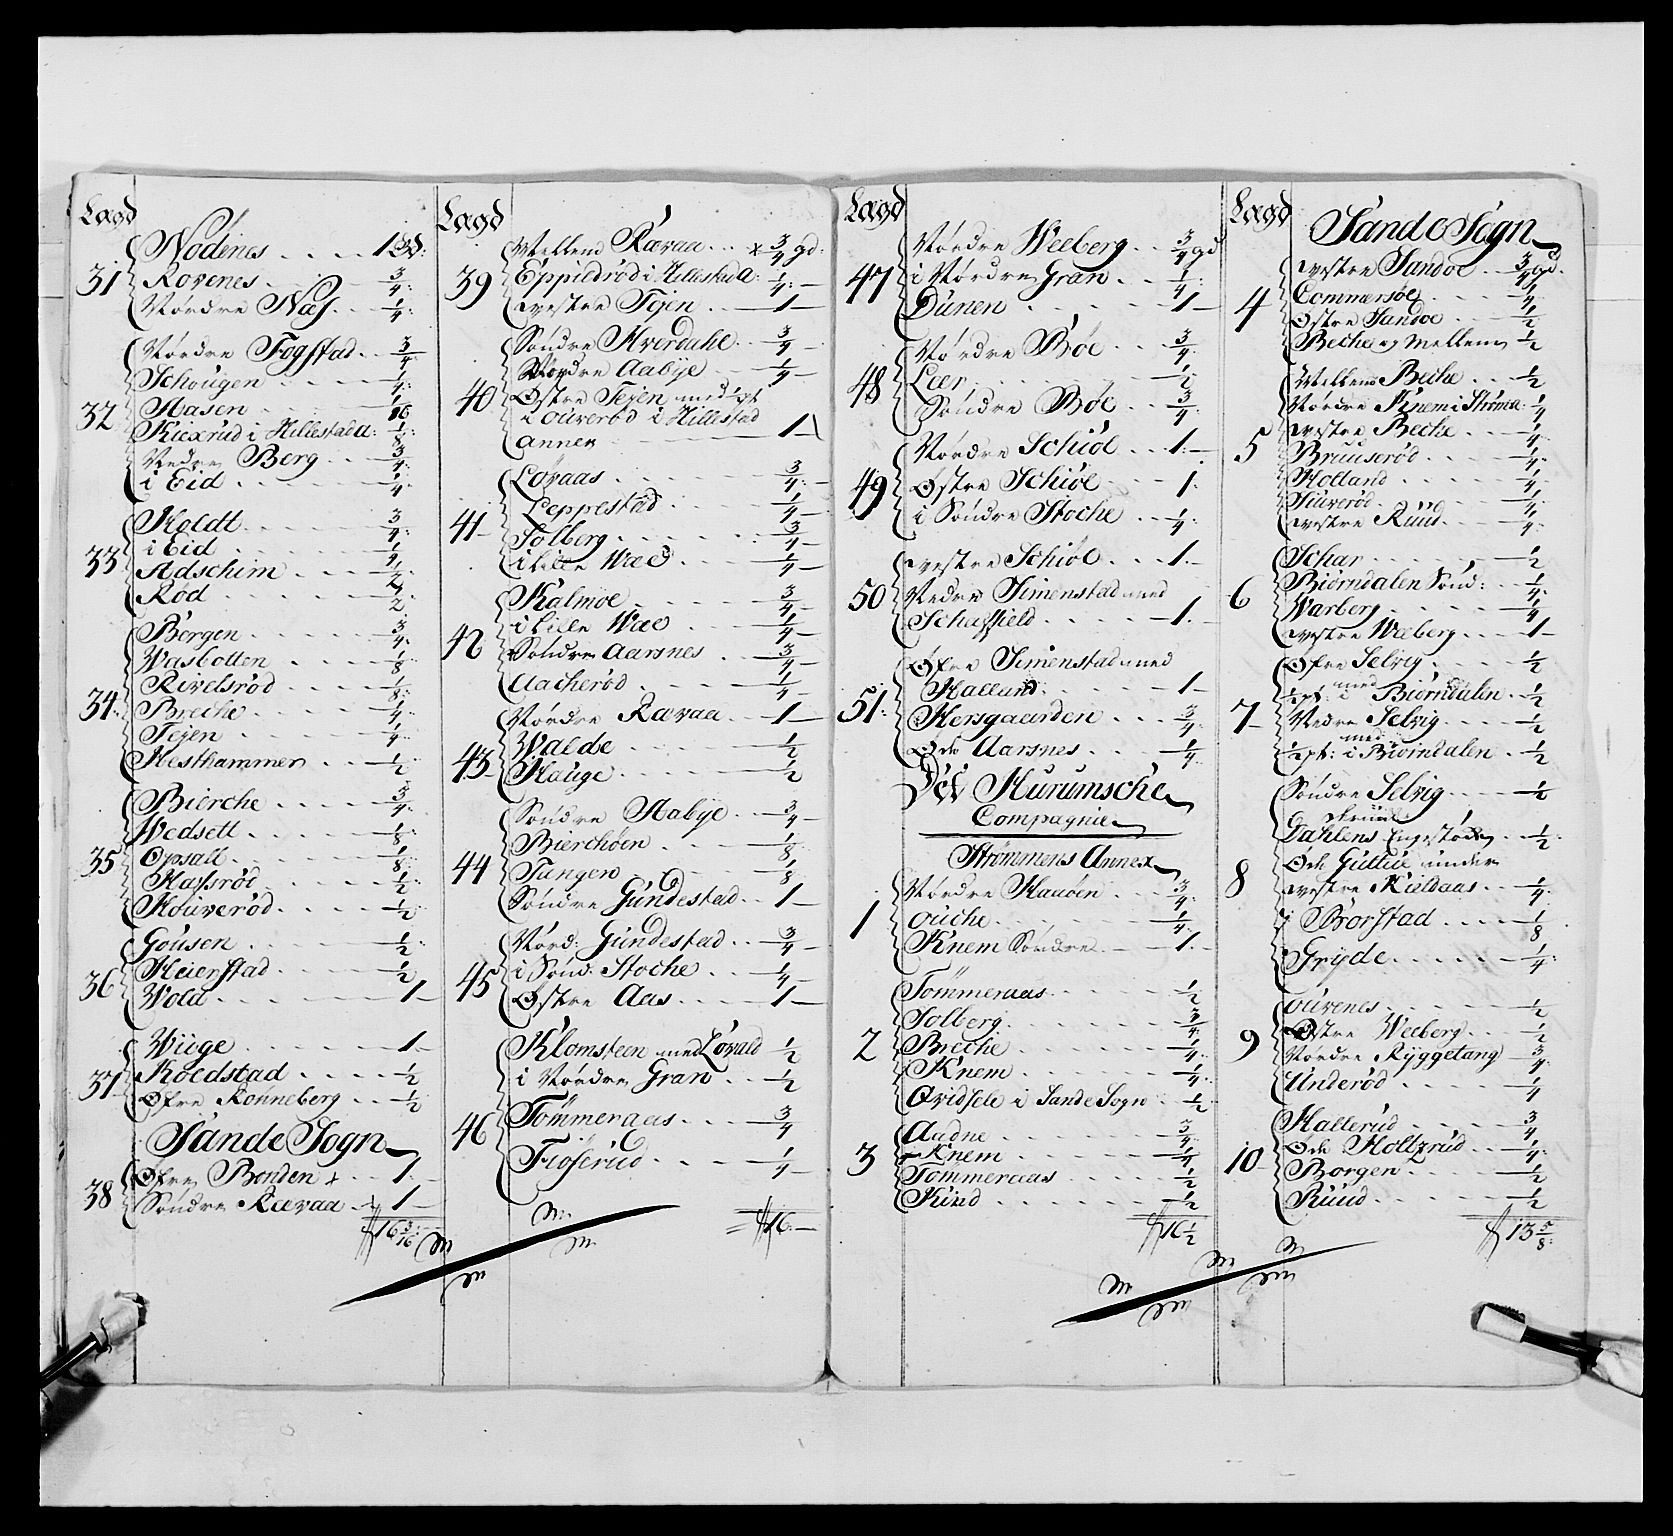 Lagd
Nodenes 1 gd:
31 Rovenes 3/4:
Nørdre Næs 1/4:
Nørdre Fogstad 3/4
Schougen 1/4:
32 Aasen 1/16
Kiexrud i Hillestad a: 1/8:
Nedre Berg 3/4:
i Eid 1/4:
Holdt 3/4:
33 i Eid 1/4:
Adschim 1/2
Rød 1/2
Bergen 3/4:
Wasbotten 1/8
Rivelsrød 1/8:
34: Breche 1/4:
Tejen 1/4
Hesthammer 1/2
Bierche 3/4:
Wedsett 1/8:
35 Opsall 1/8:
Hassrød 1/2:
Houverød 1/2
Gousen 1/2:
36 Heierstad 1/2
Wold 1
Wiige 1
37 Roedstad 1/2
Øfre Rønneberg 1/2
Sande Sogn
Øfre Bonden 1
38 Søndre Rævaa 1
16 3/16
Lagd
Mellem Rævaa 3/4 gd:
39 Eppedrød i Hillestad a: 1/4:
westre Tejen 1
Søndre Hverdahl 3/4
Nordre Aabye 1/4
40 Østre Tejen med pt
i ouverød i Hillestad
annex 1
Løvaas 3/4:
Leppestad 1/4
41 Solberg 3/4
i Lille Wæd 1/4
Kalmoe 3/4
i Lille Wæd 1/4
42 Søndre Aarsnes 3/4
Aacherød 1/4
Nørdre Rævaa 1
43 Walde 1/2
Hauge 1/2
Søndre Aabye 3/4
Bierchøen 1/8
44 Tangen 1/8
Søndre Gundestad 1
Nørd: Gundestad 3/4
45 i Sønd: Stoche 1/4
Østre Aas 1
Klomsteen med Løvald 1/2
i Nørdre Gran 1/2
46 Tømmeraas 3/4
Fiøserud 1/4
16
Lagd
Nørdre Weeberg 3/4 gd
47 i Nørdre Gran 1/4:
Dunen 1
Nørdre Bøe 3/4:
48 Leer 1/2
Søndre Bøe 3/4:
Nørdre Schiøl 1
49 Østre Schiøl 1
i Søndre Stoche 1/4:
westre Schiøl 1
50 Nedre Simenstad med
Schafjeld 1
Øfre Simenstad med
Halland 1
51: Hersgaarden 3/4
Øde Aarsnes 1/4
Det Hurumsche
Compagnie
Strømmens Annex
Nordre Hauøen 3/4:
1 ouche 1/4:
Knem Søndre 1
Tømmeraas 1/2
Solberg 3/4:
2 Breche 1/4:
Knem 1/4:
Qvidsele i Sande Sogn 1/2
Aadne 3/4:
3 Knem 1/4
Tømmeraas 1/2
Kind 1/2
16 1/2
Lagd
Sande Sogn
westre Sandoe 3/4 gd.
4 Commersøe 1/4
Østre Sandoe 1/2
Beche og Mellem 1/2
Mellem Beche 1/2
Nørdre Knem i Strøm a: 1/4
westre Beche 1/4
5 Bruuserød 1/4
Holland 1/4
Juverød 1/4
westre Ruud 1/4:
Schar 1/2
Biørndalen Sønd: 1/4:
6 Warberg 1/4
westre Weberg 1
Øfre Selvig 1/2
med
1/2 pt: i Biørndalen 1/2
7 Nedre Selvig 1/2
med
1/2 pt: i Biørndalen 1/2
Søndre Selvig 1/2
Dahlens Engestøch 1/2:
Øde Guttue under
8 westre Kieldaas 1/4:
i Borstad 1/8
Gryde 1/4:
ouvenes 1/2
Østre Weeberg 1/2
9 Nordre Ryggetang 3/4:
Underød 1/4
Hallerud 3/4
Øde Holtzrud 1/4:
10 Borgen 1/2
Ruud 1/2
13 5/8: